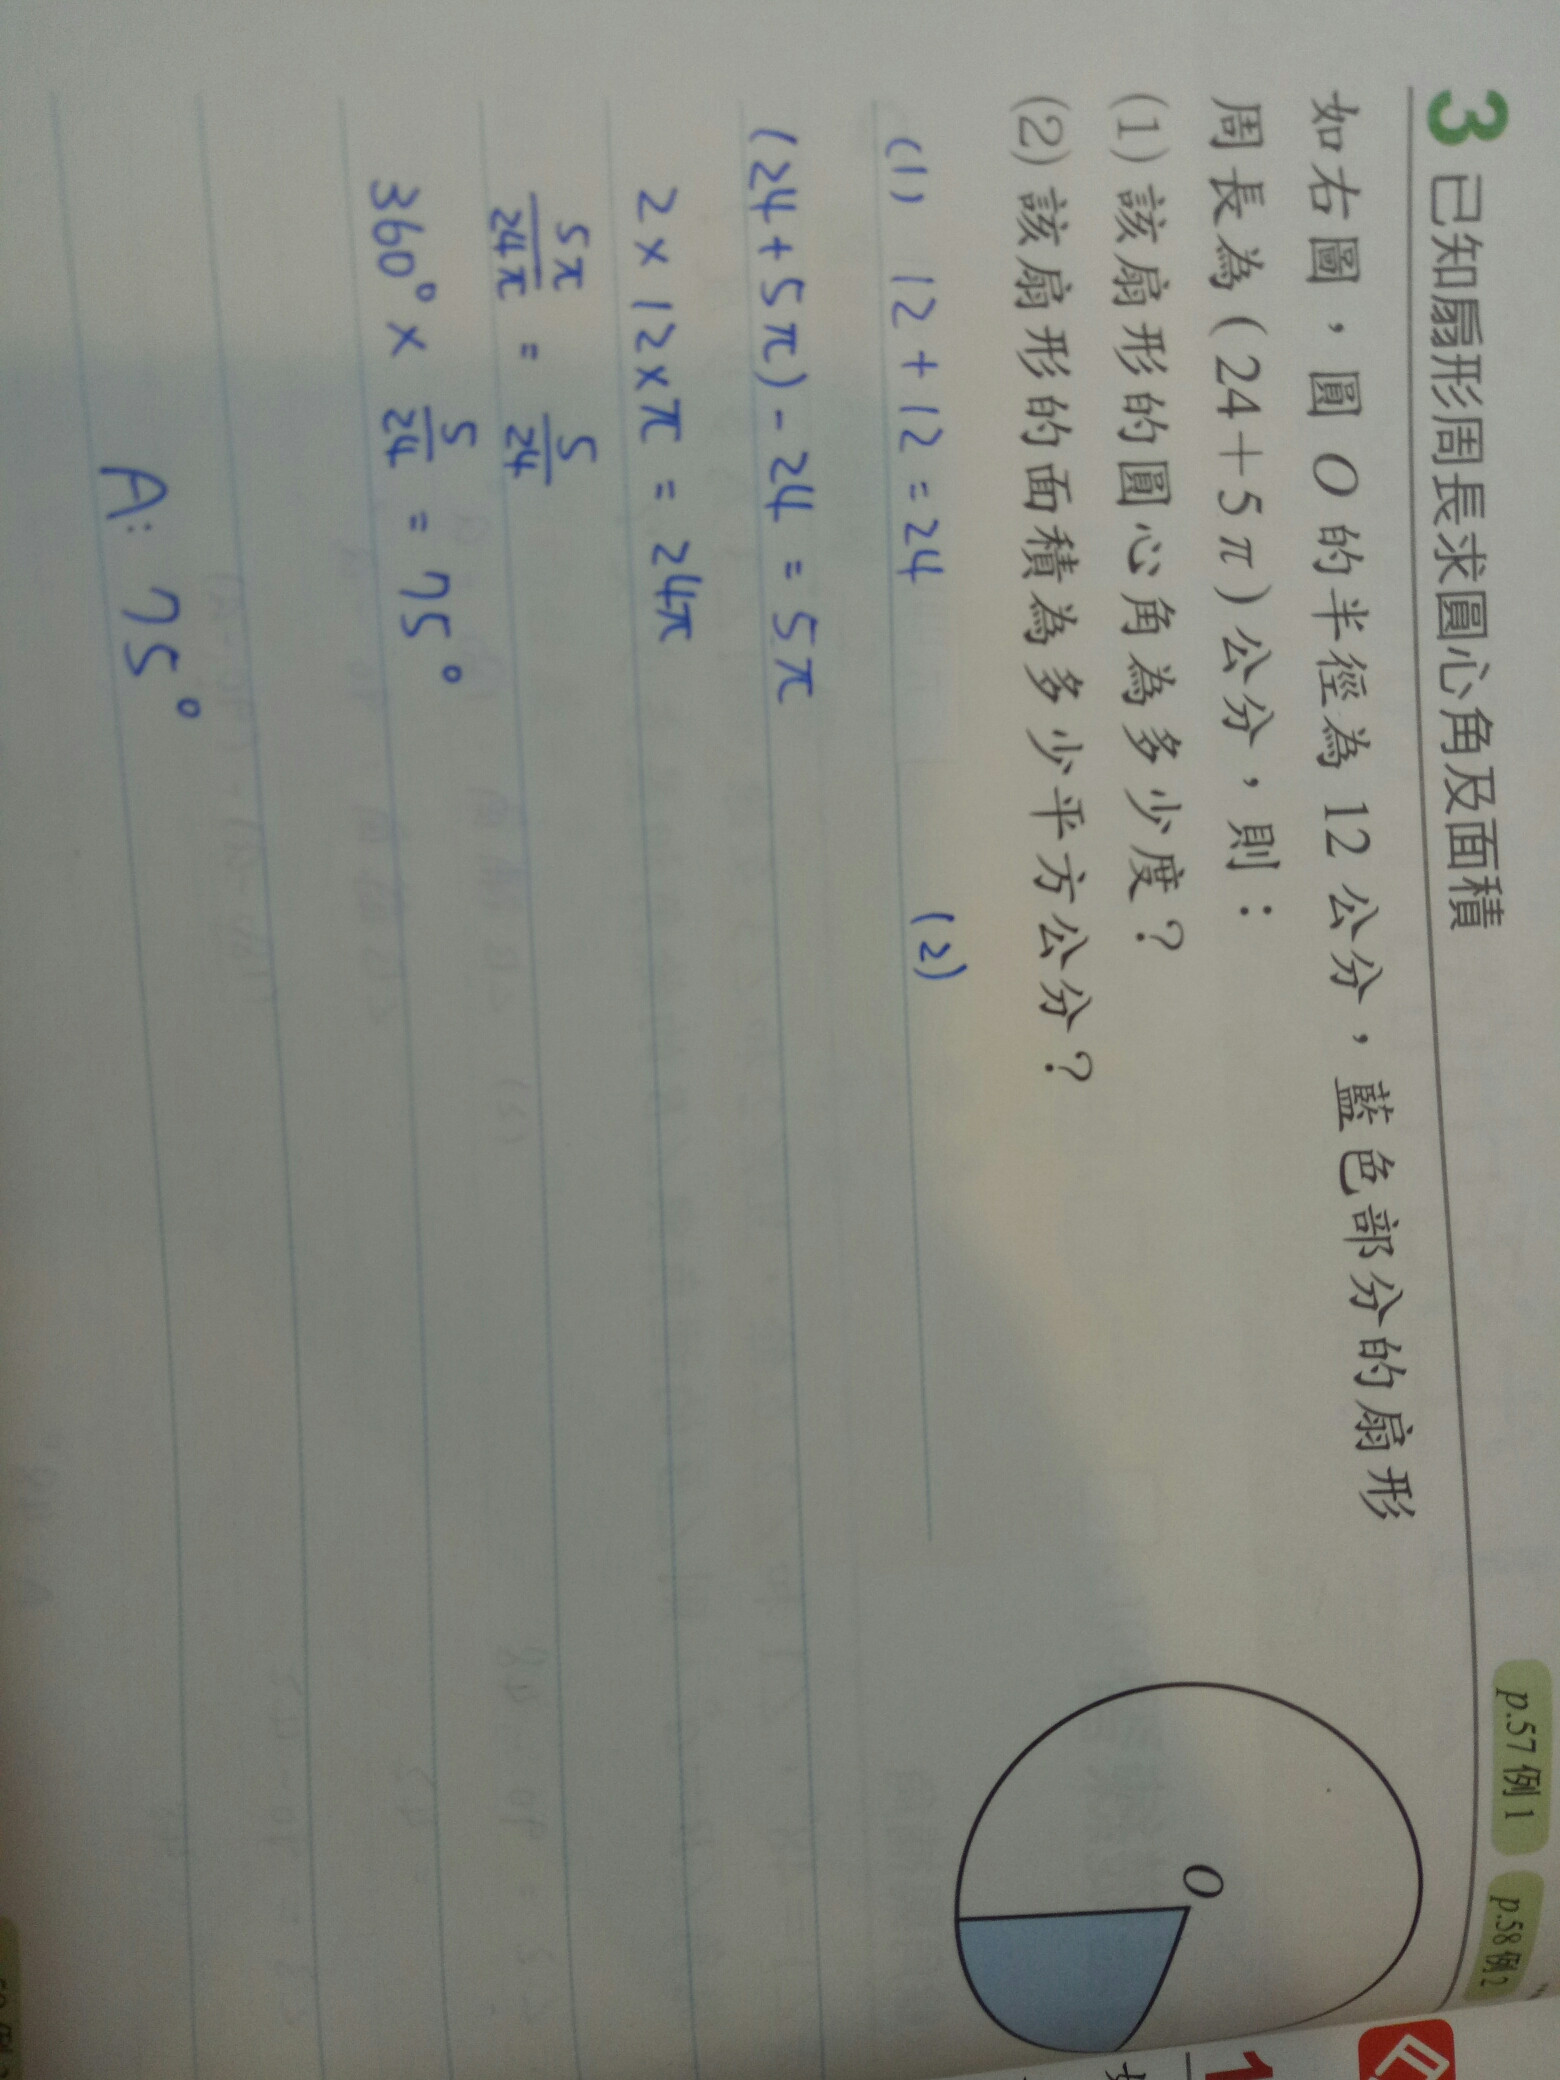 3 已知扇形周長求圓心角及面積
p.57 例1 p.58 例2
如右圖，圓 O 的半徑為 12 公分，藍色部分的扇形
周長為 (24＋5π) 公分，則：
(1) 該扇形的圓心角為多少度？
(2) 該扇形的面積為多少平方公分？
O
(1) 12 + 12 = 24
(2)
(24 + 5π) - 24 = 5π
2 × 12 × π = 24π
5π/24π = 5/24
360° × 5/24 = 75°
A: 75°
1